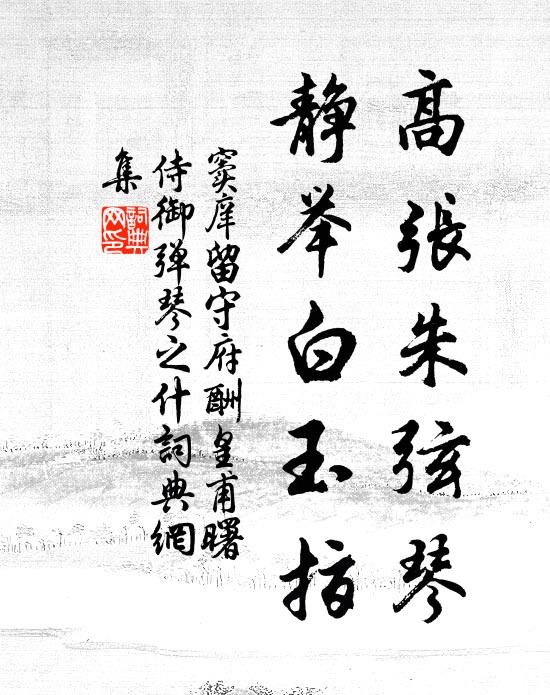 高張朱弦琴
静举白玉指
窦庠留守府酬皇甫曙
侍御弹琴之什詞典網
集
詞典
网印